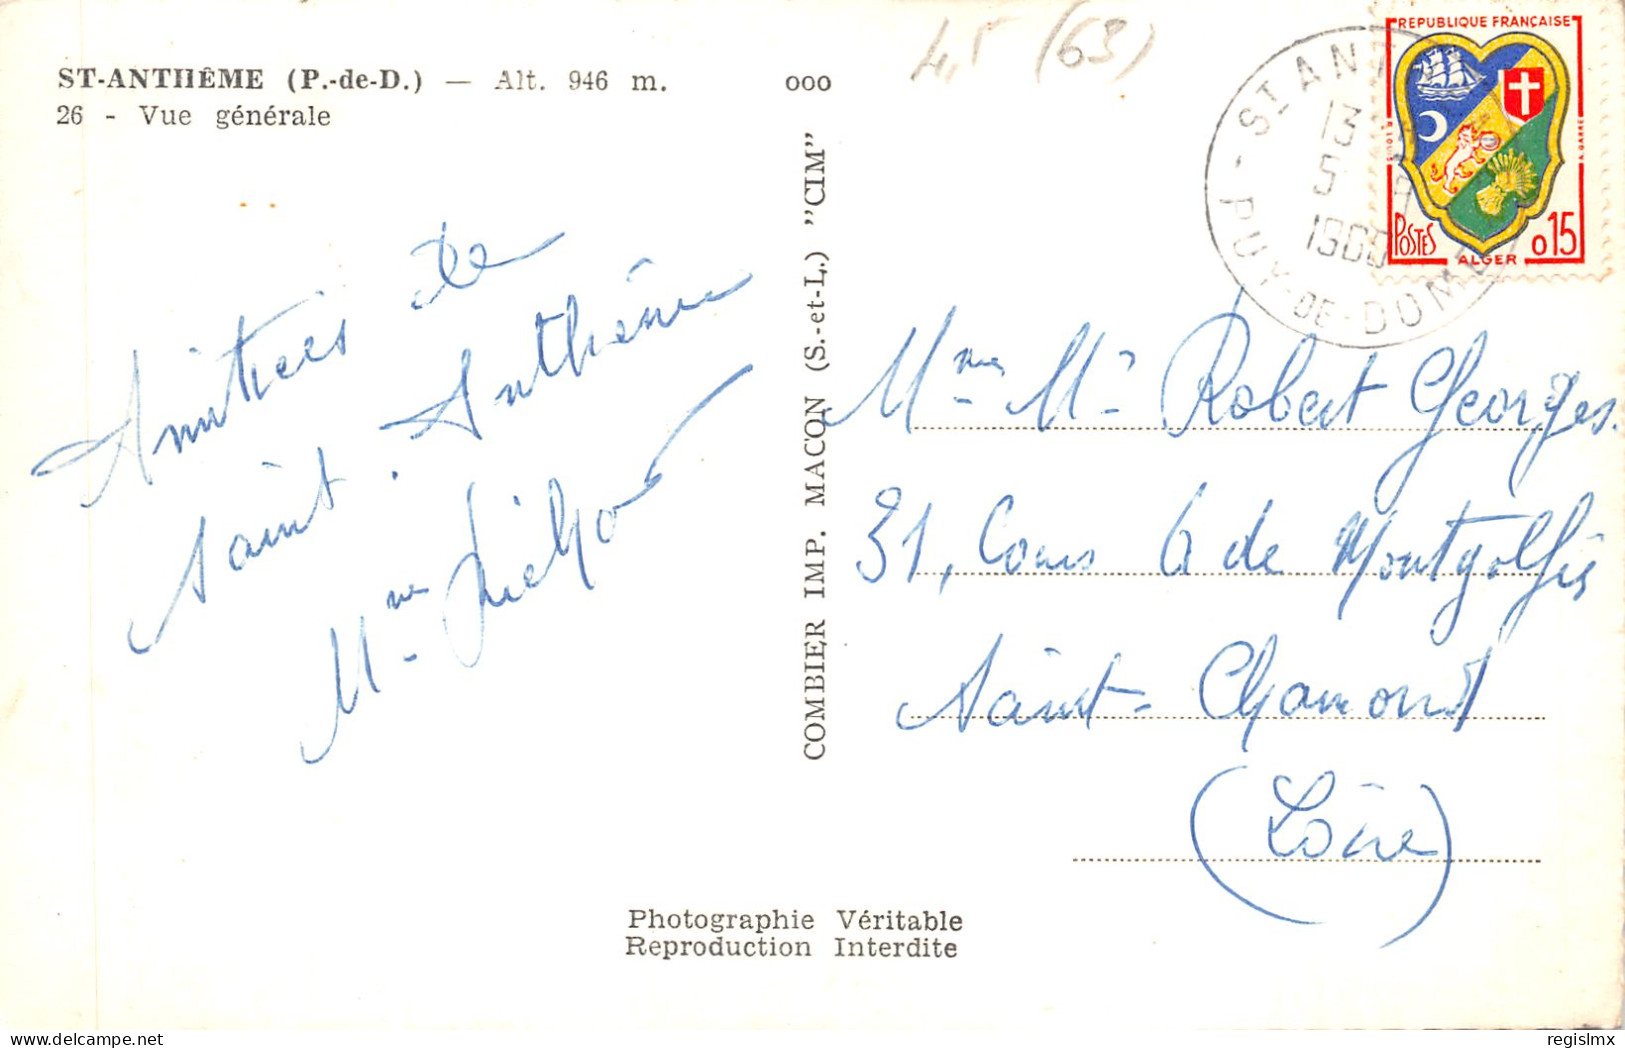 ST-ANTHÊME (P.-de-D.) — Alt. 946 m. 000
26 - Vue générale
4,5 (63)
REPUBLIQUE FRANÇAISE
POSTES 0,15
ALGER
ST ANT
13
5
1960
PUY-DE-DOME
Amitiés de
Saint. Anthème
Mme
COMBIER IMP. MACON (S.-et-L.) "CIM"
Mme Mr Robert Georges.
31, Cours A de Montgolfier
Saint-Chamond
(Loire)
Photographie Véritable
Reproduction Interdite
regislmx